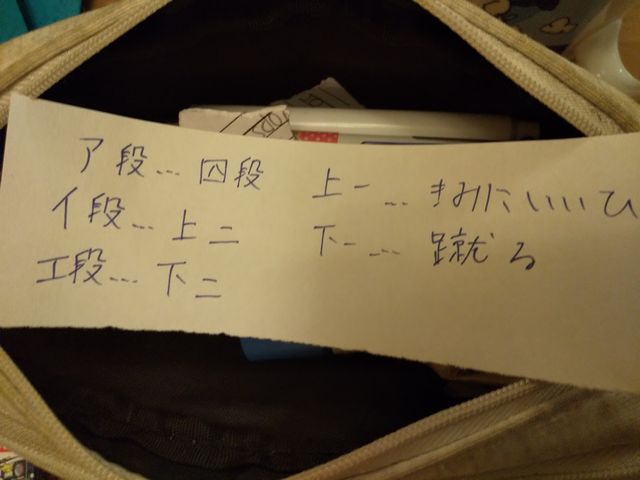 ア段…四段
イ段…上二
エ段…下二
上一…きみにいいひ
下一…蹴る